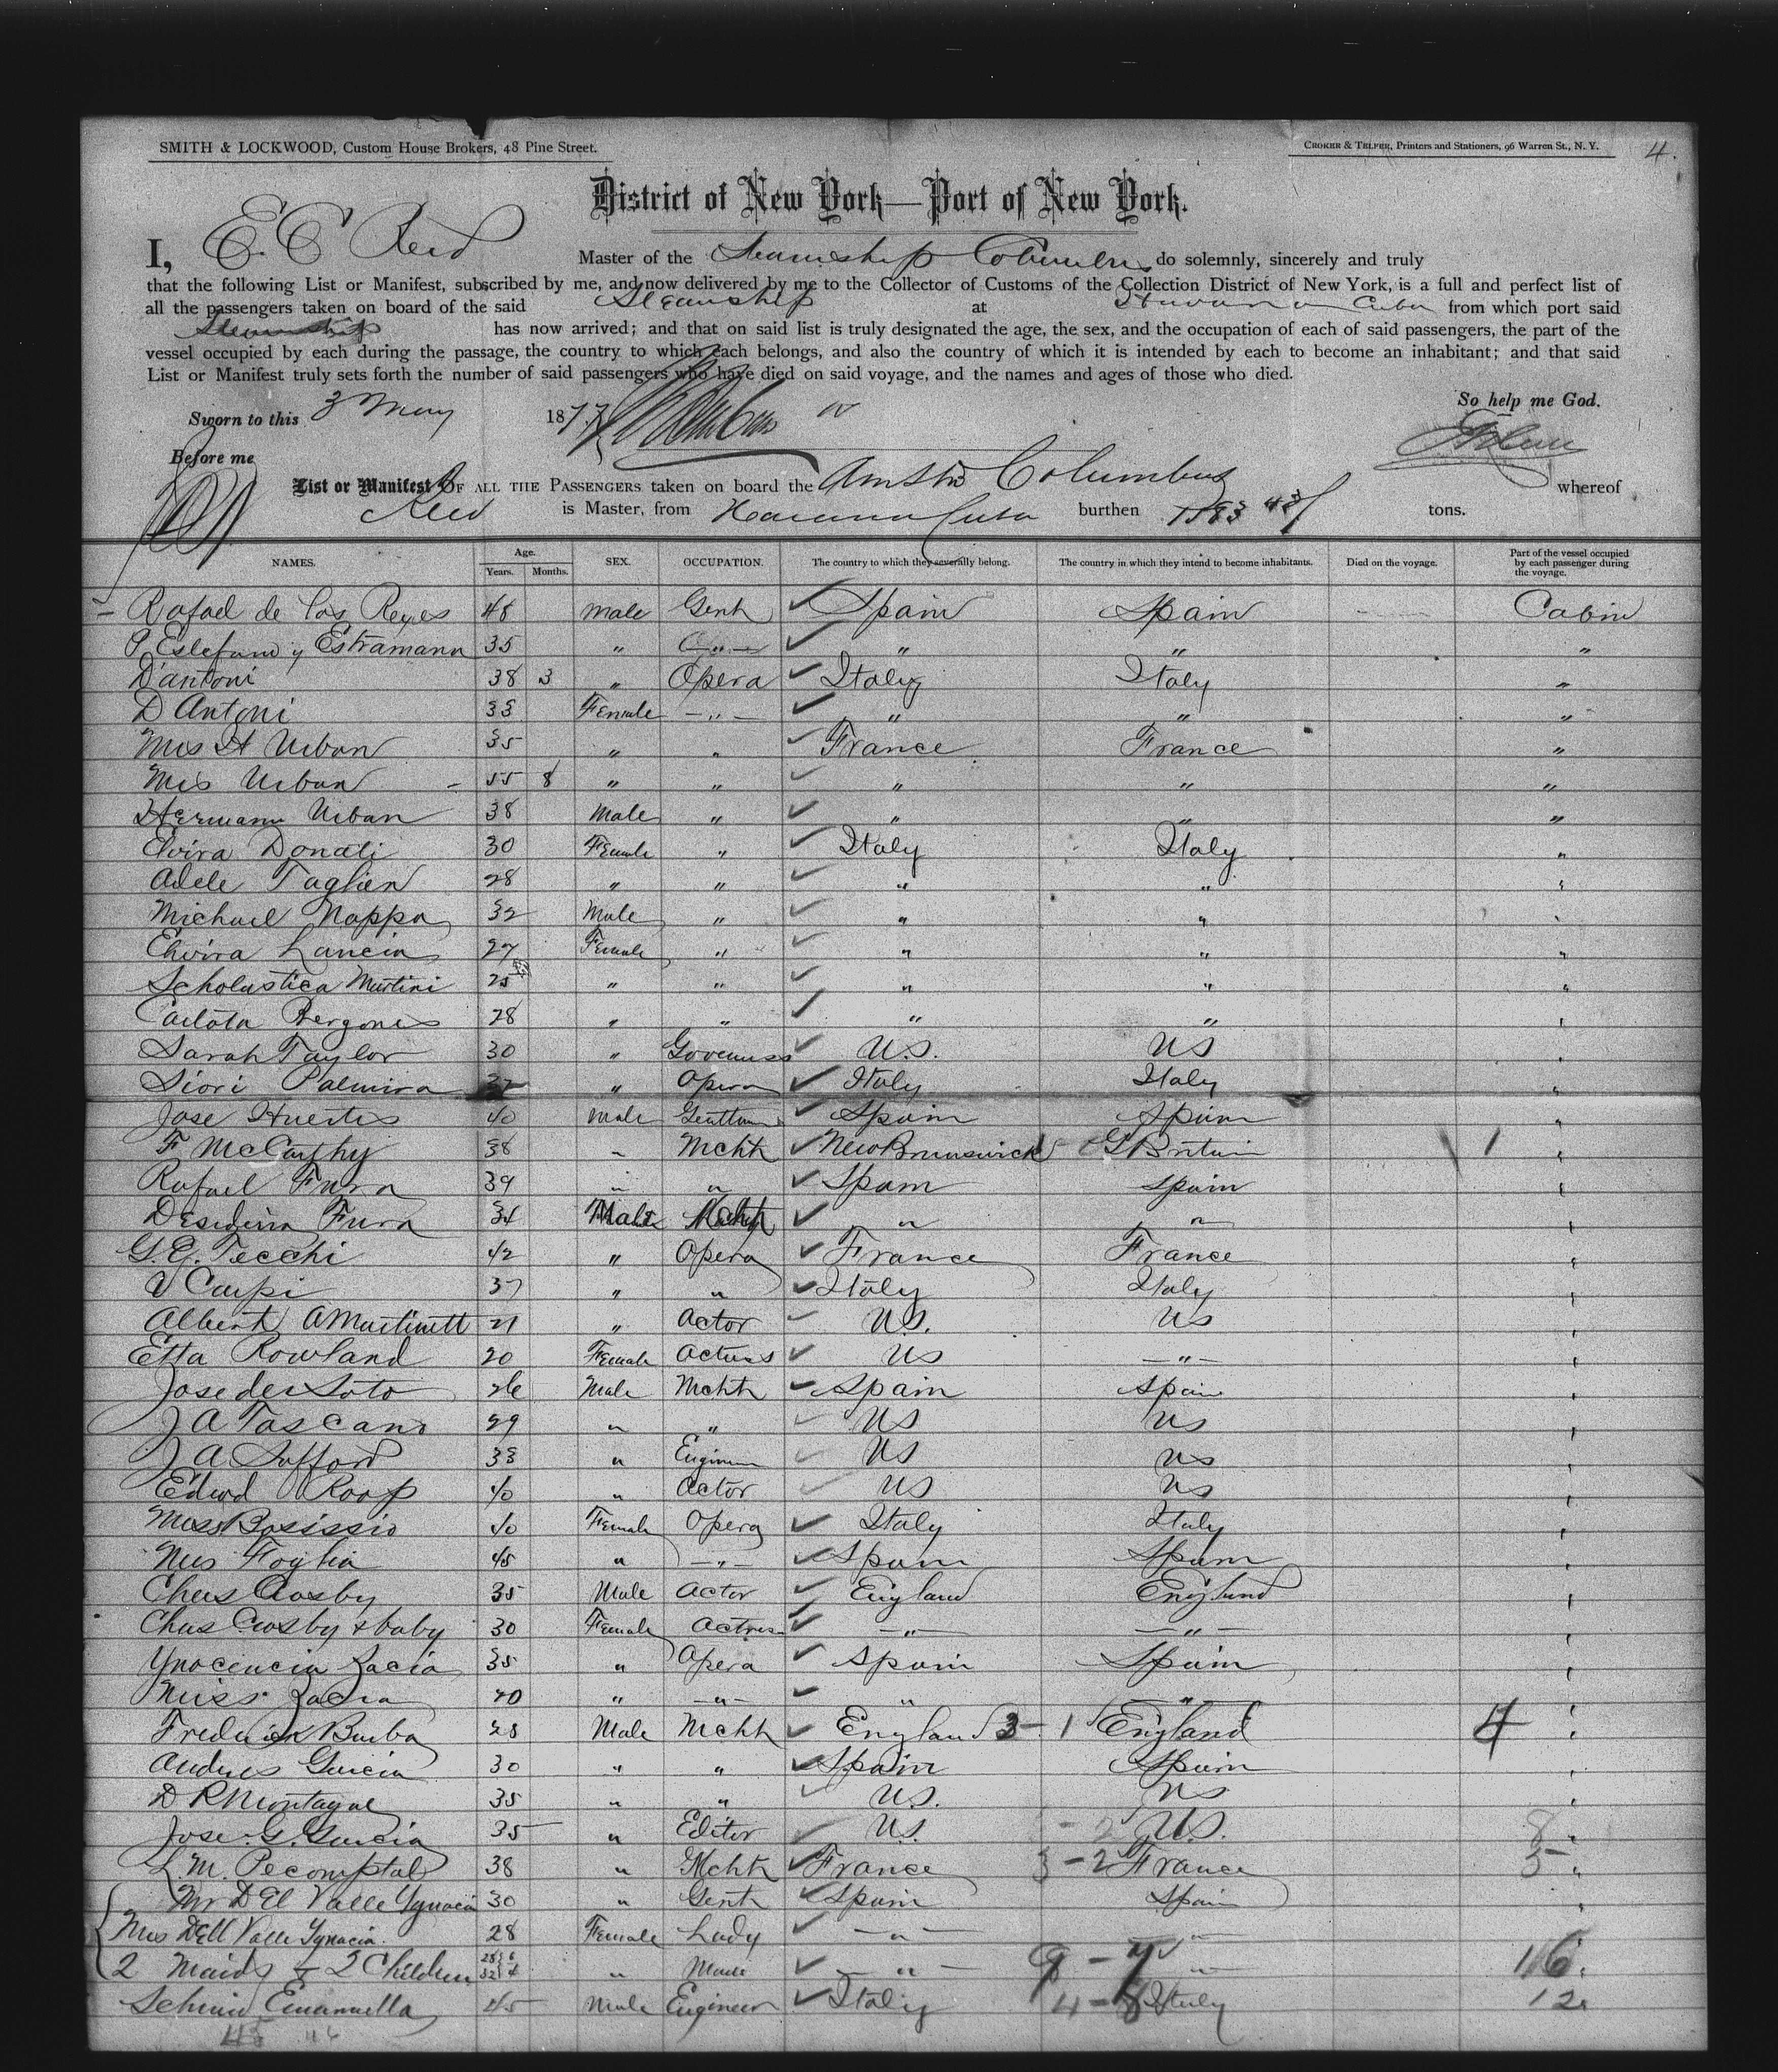 SMITH & LOCKWOOD, Custom House Brokers, 48 Pine Street.
CROKER & TELFER, Printers and Stationers, 96 Warren St., N. Y.
4.
District of New York—Port of New York.
I, E. C Reid Master of the Steamship Columbus do solemnly, sincerely and truly
that the following List or Manifest, subscribed by me, and now delivered by me to the Collector of Customs of the Collection District of New York, is a full and perfect list of
all the passengers taken on board of the said Steamship at Havana Cuba from which port said
Steamship has now arrived; and that on said list is truly designated the age, the sex, and the occupation of each of said passengers, the part of the
vessel occupied by each during the passage, the country to which each belongs, and also the country of which it is intended by each to become an inhabitant; and that said
List or Manifest truly sets forth the number of said passengers who have died on said voyage, and the names and ages of those who died.
So help me God.
Sworn to this 3 May 1877
Before me
List or Manifest OF ALL THE PASSENGERS taken on board the Am Str Columbus whereof
Reid is Master, from Havana Cuba burthen tons.
NAMES. Age. Years. Months. SEX. OCCUPATION. The country to which they severally belong. The country in which they intend to become inhabitants. Died on the voyage. Part of the vessel occupied by each passenger during the voyage.
Rafael de los Reyes 48 male Gent Spain Spain Cabin
P Estefani y Estramana 35 " " " " "
D'antoni 38 3 " Opera Italy Italy "
D Antoni 33 Female " " " "
Mrs H Urban 35 " " France France "
Mrs Urban 55 8 " " " " "
Hermann Urban 38 Male " " " "
Elvira Donati 30 Female " Italy Italy "
Adele Taglien 28 " " " " "
Michael Nappa 32 Male " " " "
Elvira Lancia 27 Female " " " "
Scholastica Martini 25 " " " " "
Carlota Bergones 28 " " " " "
Sarah Taylor 30 " Governess U.S. US "
Siori Palmira " Opera Italy Italy "
Jose Huertes 40 male Gentleman Spain Spain "
F McCarthy 38 " Mcht New Brunswick G Britain 1 "
Rafael Fura 39 " " Spain Spain "
Desideria Fura 34 Male Mcht " " "
G. G. Tecchi 42 " Opera France France "
V Carpi 37 " " Italy Italy "
Albert A Martinett 21 " Actor U.S. US "
Etta Rowland 20 Female Actress US " "
Jose de Soto 26 Male Mcht Spain Spain "
J A Toscano 29 " " US US "
J A Safford 33 " Engineer US US "
Edwd Roop 40 " Actor US US "
Miss Bosissio 40 Female Opera Italy Italy "
Mrs Foglia 45 " " Spain Spain "
Chas Crosby 35 Male Actor England England "
Chas Crosby & baby 30 Female Actress " " "
Ynocencia Zacia 35 " Opera Spain Spain "
Miss Zacia 20 " " " " "
Frederick Burba 28 Male Mcht England 3 - 1 England 4 "
Andres Garcia 30 " " Spain Spain "
D R Montague 35 " " U.S. US "
Jose G. Garcia 35 " Editor U.S. - 2 U.S. 8 "
L. M. Pecomptal 38 " Mcht France 3 - 2 France 5 "
Mr D El Valle Ygnacia 30 " Gent Spain Spain "
Mrs Dell Valle Ygnacia. 28 Female Lady " " "
2 Maids & 2 Children " Maid " 9 - 7 " 16 "
Schini Emanuella 45 Male Engineer Italy 4 - 8 Italy 12 "
45 46